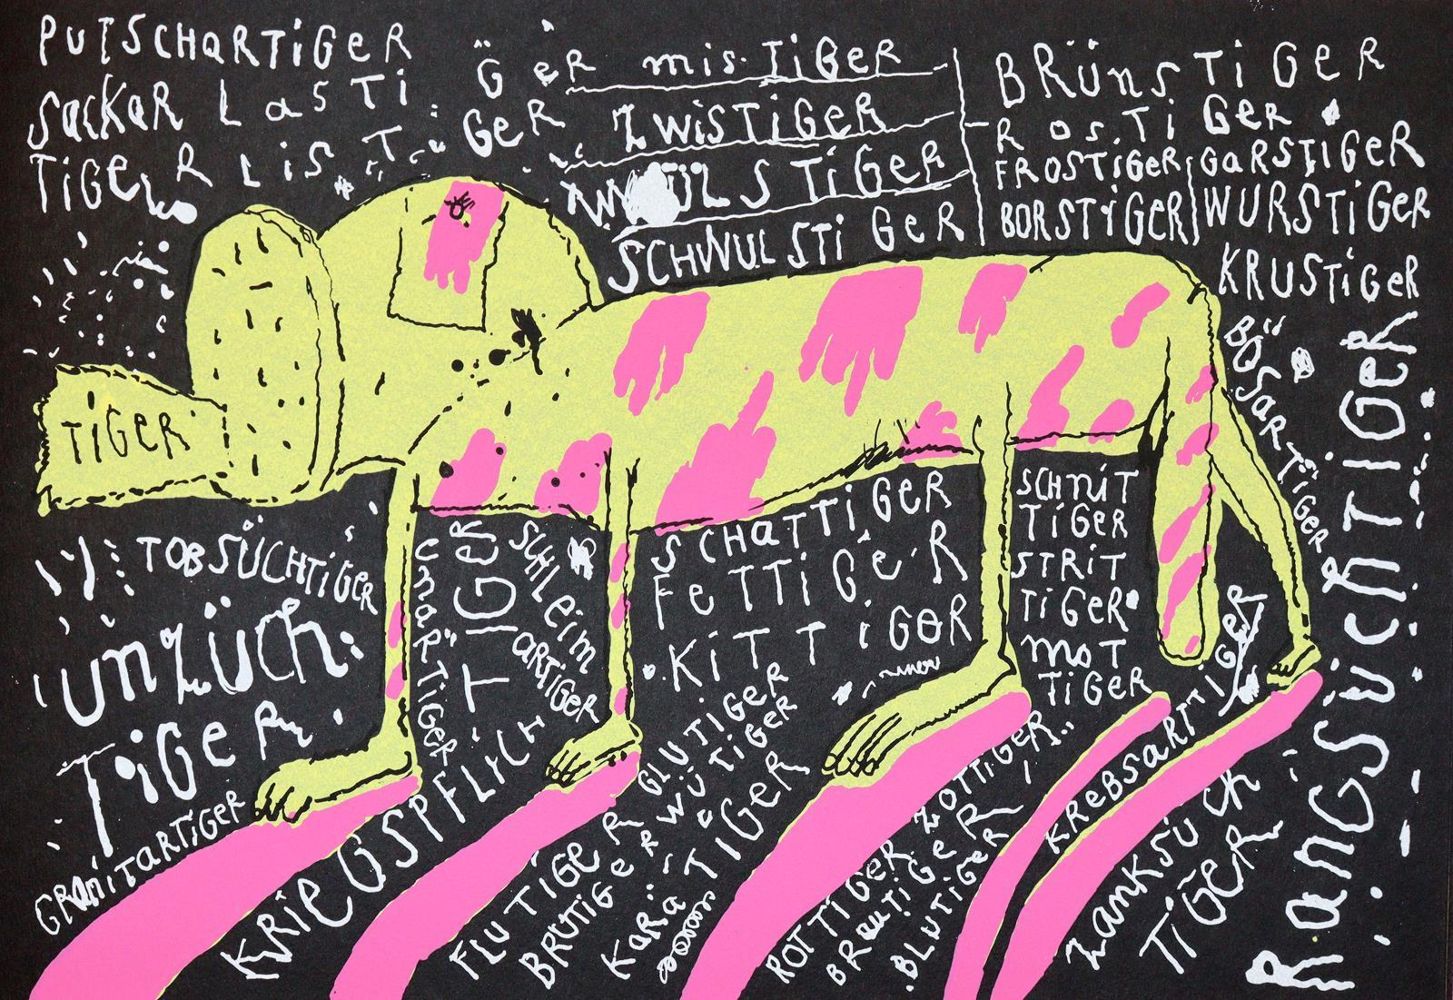 PUTSCHARTIGER
SARKAR LASTI
TIGER LISTIGER
GER MISTIGER
ZWISTIGER
WÜLSTIGER
SCHWULSTIGER
BRÜNSTIGER
ROSTIGER
FROSTIGER
BORSTIGER
GARSTIGER
WURSTIGER
KRUSTIGER
BÖSARTIGER
RANGSÜCHTIGER
TIGER
TOBSÜCHTIGER
UNZÜCH
TIGER
GRANITARTIGER
UNARTIGER
SCHLEIM
ARTIGER
KRIEGSPFLICHTIGER
SCHATTIGER
FETTIGER
KITTIGER
SCHNIT
TIGER
STRIT
TIGER
MOT
TIGER
FLUTIGER
BRUTIGER
GLUTIGER
WÜTIGER
KARÄTIGER
ROTTIGER
ZOTTIGER
BRAUTIGER
BLUTIGER
KREBSARTTIGER
ZANKSÜCH
TIGER